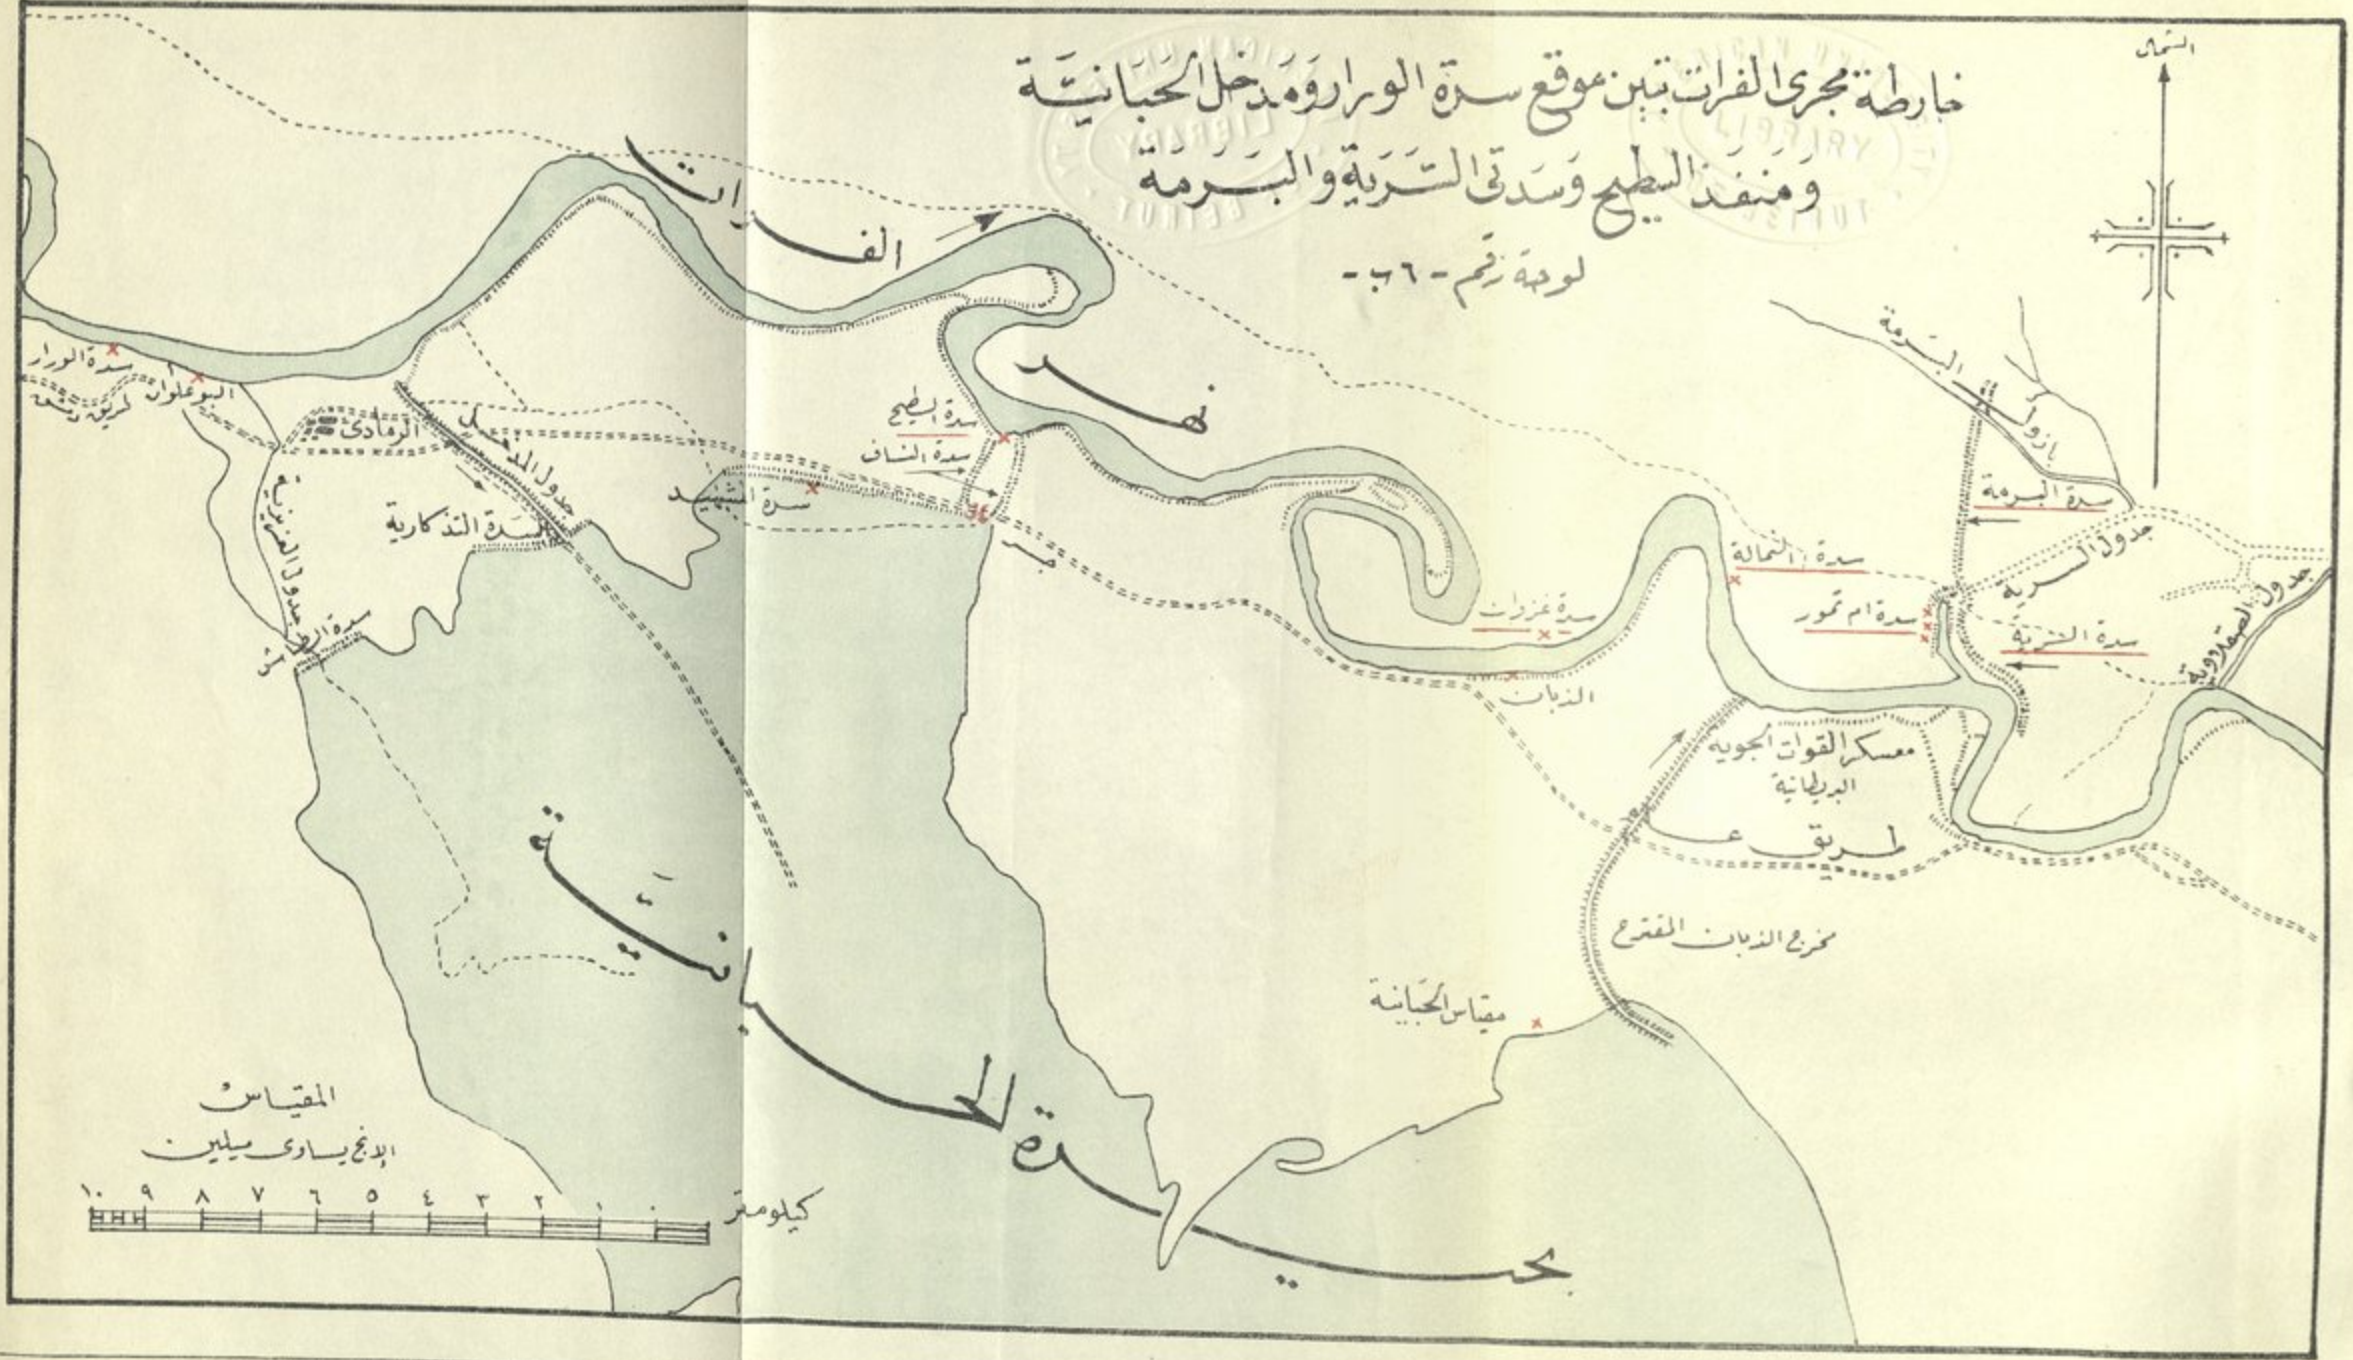 خارطة مجرى الفرات تبين موقع سدة الورار وَمَدخل الحَبَانيَّة
وَمَنفَذ البطيح وَسَدتى التَرَبَة والبَرمَة
لوحة رقم - ٦ ب -
الشمال
نهر
الفرات
سدة الورار
البو علوان
طريق دمشق
الرمادي
جدول المدخل
جدول العزيزية
السدة التذكارية
سدة المشيهد
سدة البطيح
سدة النساف
جسر
سدة غزوان
الذبان
سدة الشمالة
سدة ام تمور
البرمة
بازول
سدة البرمة
جدول السرية
سدة التربة
جدول الصقلاوية
معسكر القوات الجوية
البريطانية
طريق
مخرج الذبان المقترح
مقياس الحبانية
بحيرة الحبانيَّة
المقياس
الإنج يساوى ميلين
١٠ ٩ ٨ ٧ ٦ ٥ ٤ ٣ ٢ ١ ٠
كيلومتر